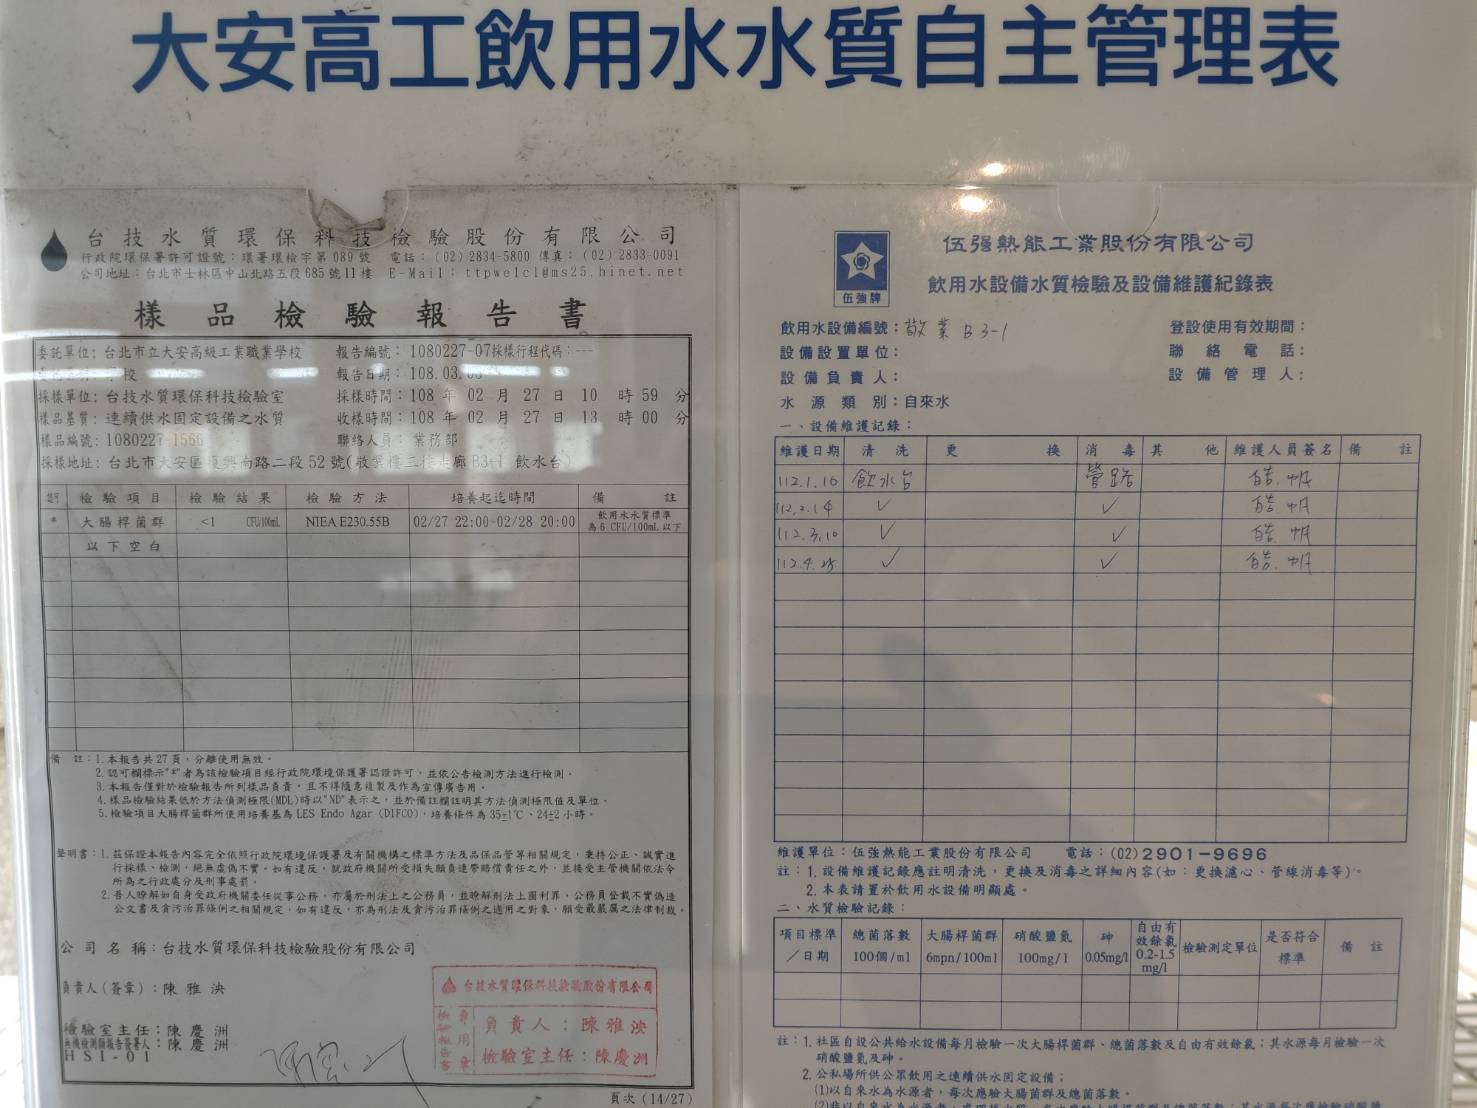 大安高工飲用水水質自主管理表
台技水質環保科技檢驗股份有限公司
行政院環保署許可證號：環署環檢字第089號 電話：(02)2834-5800 傳真：(02)2833-0091
公司地址：台北市士林區中山北路五段685號11樓 E-Mail：ttpwelcl@ms25.hinet.net
樣品檢驗報告書
委託單位：台北市立大安高級工業職業學校 報告編號：1080227-07採樣行程代碼：---
校 報告日期：108.03.
採樣單位：台技水質環保科技檢驗室 採樣時間：108 年 02 月 27 日 10 時 59 分
樣品基質：連續供水固定設備之水質 收樣時間：108 年 02 月 27 日 13 時 00 分
樣品編號：1080227-1566 聯絡人員：業務部
採樣地址：台北市大安區復興南路二段52號(敬業樓三樓走廊B3-1 飲水台)
認可 檢驗項目 檢驗結果 檢驗方法 培養起迄時間 備註
* 大腸桿菌群 <1 CFU/100mL NIEA E230.55B 02/27 22:00-02/28 20:00 飲用水水質標準
為6 CFU/100mL以下
以下空白
備 註：1.本報告共27頁，分離使用無效。
2.認可欄標示"*"者為該檢驗項目經行政院環境保護署認證許可，並依公告檢測方法進行檢測。
3.本報告僅對於檢驗報告所列樣品負責，且不得隨意複製及作為宣傳廣告用。
4.樣品檢驗結果低於方法偵測極限(MDL)時以"ND"表示之，並於備註欄註明其方法偵測極限值及單位。
5.檢驗項目大腸桿菌群所使用培養基為LES Endo Agar (DIFCO)，培養條件為35±1℃、24±2小時。
聲明書：1.茲保證本報告內容完全依照行政院環境保護署及有關機構之標準方法及品保品管等相關規定，秉持公正、誠實進
行採樣、檢測，絕無虛偽不實，如有違反，就政府機關所受損失願負連帶賠償責任之外，並接受主管機關依法令
所為之行政處分及刑事處罰。
2.吾人瞭解如自身受政府機關委任從事公務，亦屬於刑法上之公務員，並瞭解刑法上圖利罪、公務員登載不實偽造
公文書及貪污治罪條例之相關規定，如有違反，亦為刑法及貪污治罪條例之適用之對象，願受最嚴厲之法律制裁。
公司名稱：台技水質環保科技檢驗股份有限公司
負責人(簽章)：陳雅泱
檢驗室主任：陳慶洲
無機檢測類報告簽署人：陳慶洲
HSI-01
台技水質環保科技檢驗股份有限公司
檢驗報告書專用章
負責人：陳雅泱
檢驗室主任：陳慶洲
頁次(14/27)
伍強牌
伍强熱能工業股份有限公司
飲用水設備水質檢驗及設備維護紀錄表
飲用水設備編號：敬業 B3-1 登設使用有效期間：
設備設置單位： 聯絡電話：
設備負責人： 設備管理人：
水源類別：自來水
一、設備維護記錄：
維護日期 清洗 更換 消毒 其他 維護人員簽名 備註
112.1.10 飲水台 管路 皓帆
112.2.14 ✓ ✓ 皓帆
112.3.10 ✓ ✓ 皓帆
112.4.25 ✓ ✓ 皓帆
維護單位：伍強熱能工業股份有限公司 電話：(02)2901-9696
註：1.設備維護記錄應註明清洗，更換及消毒之詳細內容(如：更換濾心、管線消毒等)。
2.本表請置於飲用水設備明顯處。
二、水質檢驗記錄：
項目標準／日期 總菌落數 100個/ml 大腸桿菌群 6mpn/100ml 硝酸鹽氮 100mg/l 砷 0.05mg/l 自由有效餘氯 0.2-1.5 mg/l 檢驗測定單位 是否符合標準 備註
註：1.社區自設公共給水設備每月檢驗一次大腸桿菌群、總菌落數及自由有效餘氯；其水源每月檢驗一次
硝酸鹽氮及砷。
2.公私場所供公眾飲用之連續供水固定設備；
(1)以自來水為水源者，每次應驗大腸菌群及總菌落數。